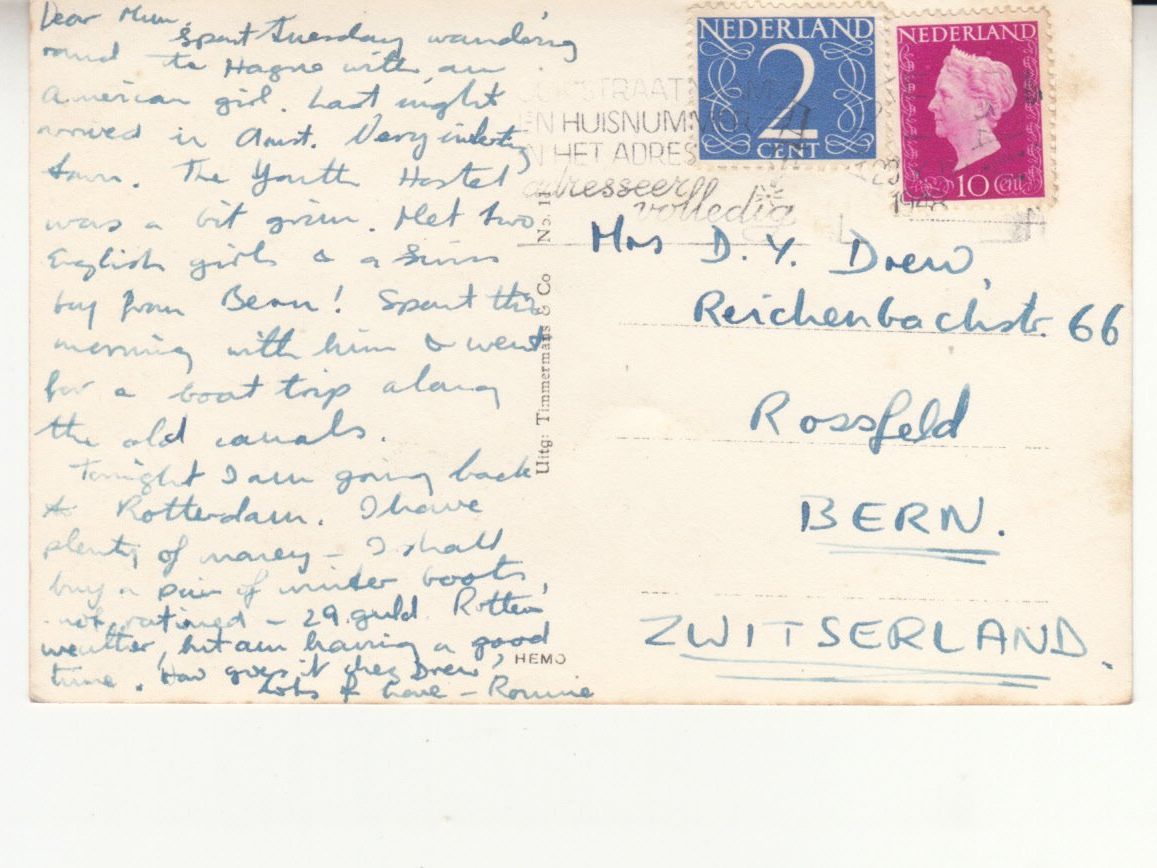 Dear Mum,
Spent Tuesday wandering
round the Hague with an
American girl. Last night
arrived in Amst. Very interesting
town. The Youth Hostel
was a bit grim. Met two
English girls & a Swiss
boy from Bern! Spent this
morning with him & went
for a boat trip along
the old canals.
Tonight I am going back
to Rotterdam. I have
plenty of money – I shall
buy a pair of winter boots,
not rationed – 29 guld. Rotten
weather, but am having a good
time. How goes it chez Drew,
Lots of love – Ronnie
Uitg: Timmermans & Co No. 11
HEMO
NEDERLAND
2
CENT
NEDERLAND
10 Cent
STRAAT
EN HUISNUMMER
IN HET ADRES
adresseer
volledig
1948
Mrs D. Y. Drew,
Reichenbachstr. 66
Rossfeld
BERN.
ZWITSERLAND.